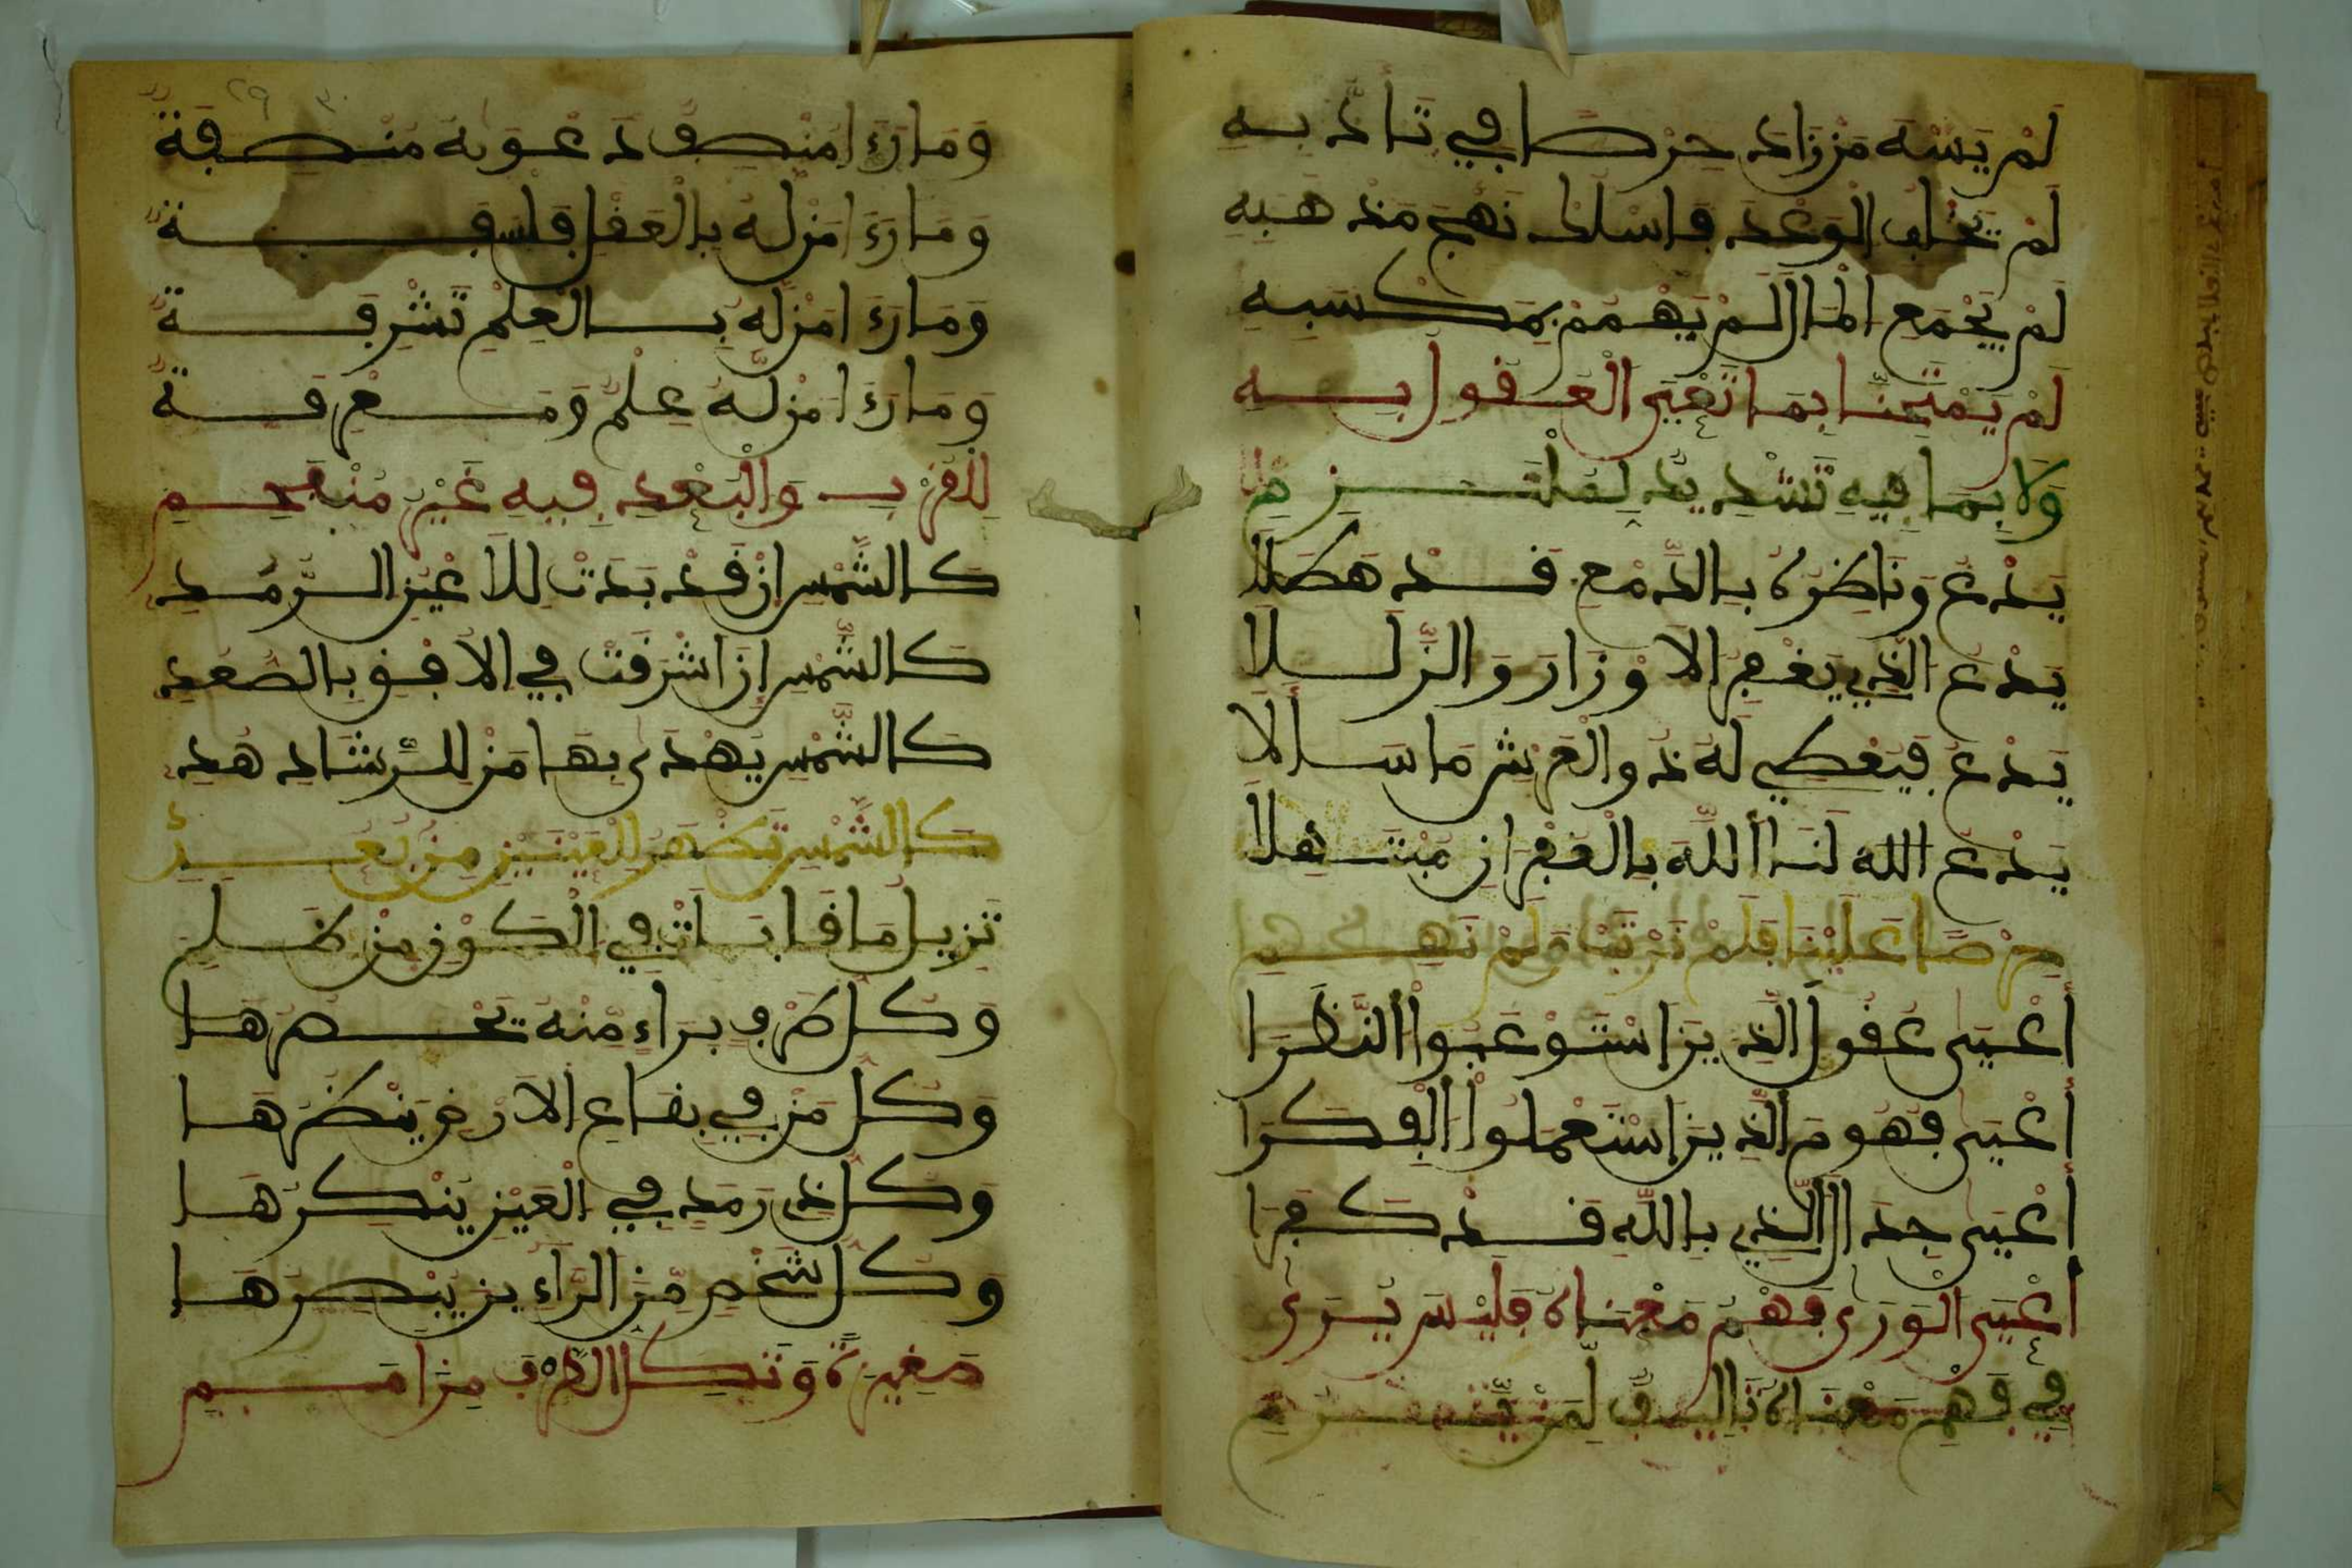 لَمْ يَسْهَ مَن زَادَ حِرْصًا فِي تَأَدُّبِهِ
لَمْ يُخْلِفِ الْوَعْدَ فَاسْلُكْ نَهْجَ مَذْهَبِهِ
لَمْ يَجْمَعِ الْمَالَ لَمْ يَهْمُمْ بِمَكْسَبِهِ
لَمْ يَمْتَحِنَّا بِمَا تَعْيَى الْعُقُولُ بِهِ
وَلَا بِمَا فِيهِ تَشْدِيدٌ
يَدْعُ وَنَاظِرُهُ بِالدَّمْعِ قَدْ هَطَلَا
يَدْعُ الَّذِي يَغْفِرُ الْأَوْزَارَ وَالزَّلَلَا
يَدْعُ فَيُعْطِي لَهُ ذُو الْعَرْشِ مَا سَأَلَا
يَدْعُ اللَّهَ لَنَا اللَّهَ بِالْغُفْرَانِ مُبْتَهِلَا
حِرْصًا عَلَيْنَا فَلَمْ نَرْتَبْ وَلَمْ نَهِمِ
أَعْيَى عُقُولَ الَّذِينَ اسْتَوْعَبُوا النَّظَرَا
أَعْيَى فُهُومَ الَّذِينَ اسْتَعْمَلُوا الْفِكَرَا
أَعْيَى جِدَالَ الَّذِي بِاللَّهِ قَدْ كَفَرَا
أَعْيَى الْوَرَى فَهْمُ مَعْنَاهُ فَلَيْسَ يُرَى
فِي فَهْمِ مَعْنَاهُ تَالِيفٌ لِمَنْ
وَمَا رَءَا مُنْصِفٌ دَعْوَتَهُ مُنْصِفَةً
وَمَا رَءَا مَن لَهُ بِالْعَقْلِ فَلْسَفَةً
وَمَا رَءَا مَن لَهُ بِالْعِلْمِ تَشْرِفَةً
وَمَا رَءَا مَن لَهُ عِلْمٌ وَمَعْرِفَةً
لِلْقُرْبِ وَالْبُعْدِ فِيهِ غَيْرُ مُنْفَحِمِ
كَالشَّمْسِ إِن قَدْ بَدَتْ لِلْأَعْيُنِ الرُّمُدِ
كَالشَّمْسِ إِنَ اشْرَقَتْ فِي الْأُفْقِ بِالصُّعُدِ
كَالشَّمْسِ يُهْدَى بِهَا مَن لِلرَّشَادِ هُدِ
كَالشَّمْسِ تَظْهَرُ لِلْعَيْنَيْنِ مِن بُعُدٍ
تُزِيلُ مَا فَابَاتْ فِي الْكَوْنِ مِن ظُلَمِ
وَكُلُّ طَرْفٍ بَرَاءٍ مِنْهُ يَحْصُرُهَا
وَكُلُّ مَن فِي بِقَاعِ الْأَرْضِ يَنْظُرُهَا
وَكُلُّ ذِي رَمَدٍ فِي الْعَيْنِ يُنْكِرُهَا
وَكُلُّ شَخْصٍ مِنَ الرَّاءِينَ يُبْصِرُهَا
صَغِيرَةً وَتُكِلُّ الطَّرْفَ مِن أَمَمِ